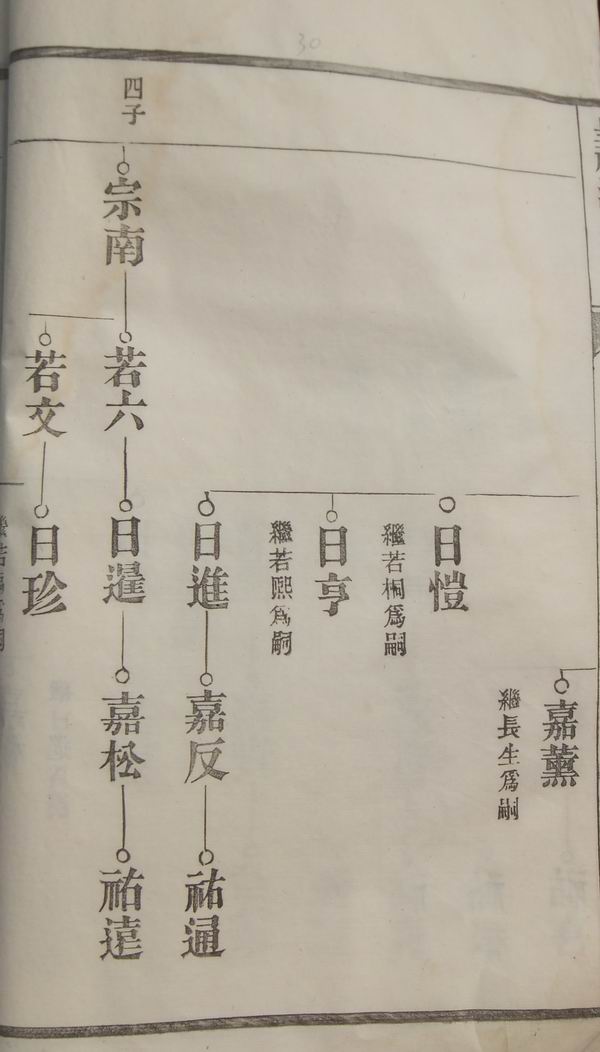 30
嘉薰
繼長生爲嗣
日愷
繼若桐爲嗣
日亨
繼若熙爲嗣
日進
嘉反
祐通
四子
宗南
若六
日暹
嘉松
祐遠
若文
日珍